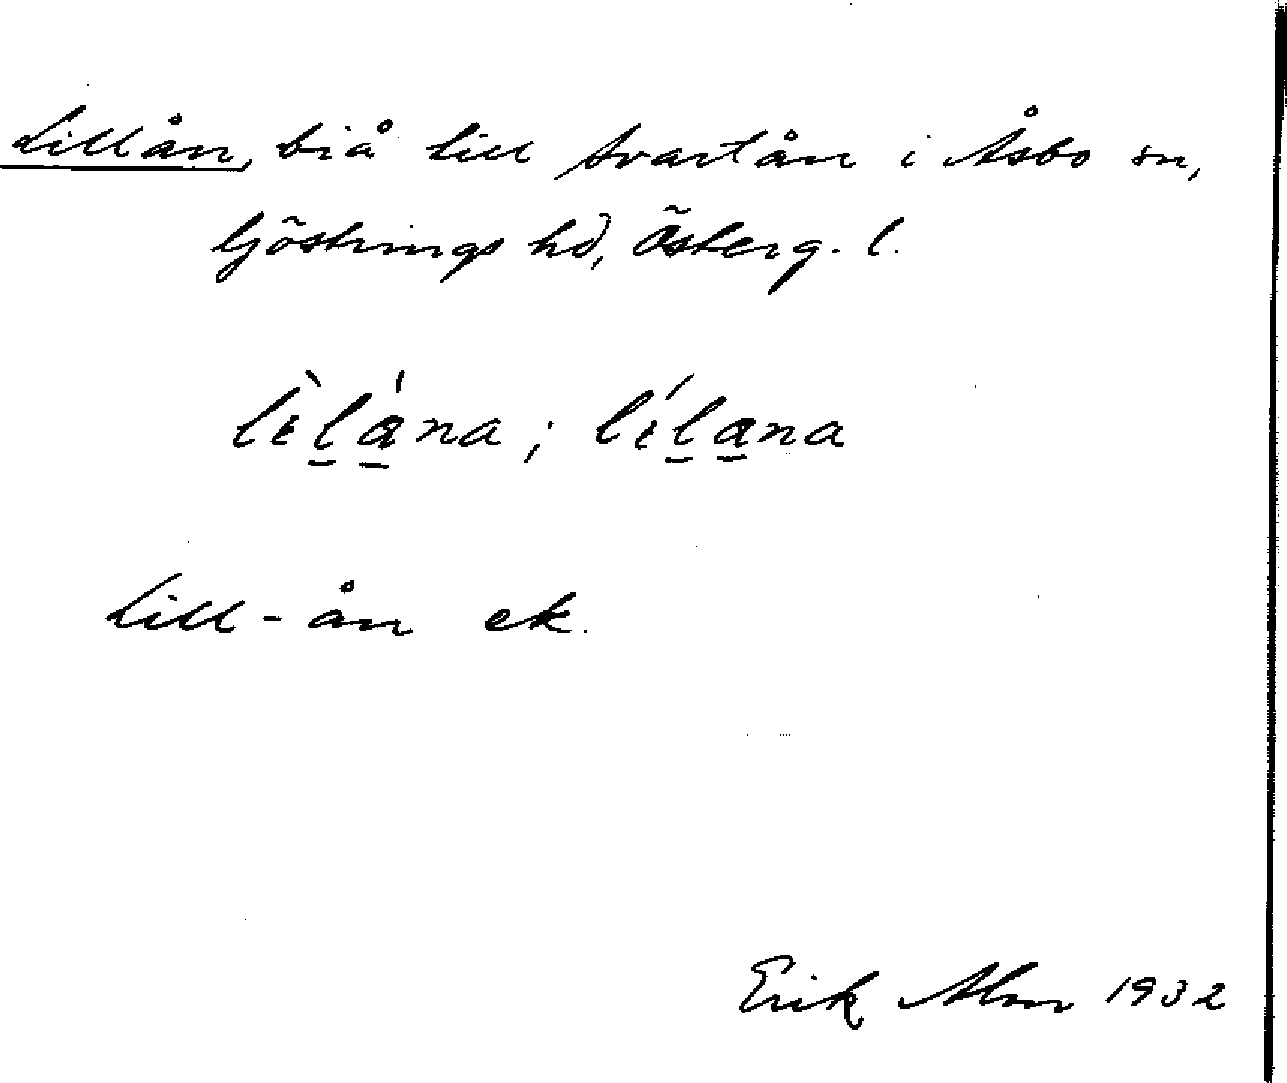 Lillån, biå till Svartån i Åsbo sn,
Göstrings hd, Österg. l.
lìl̠á̠na; líl̠a̠na
Lill-ån ek.
Erik Alm 1932